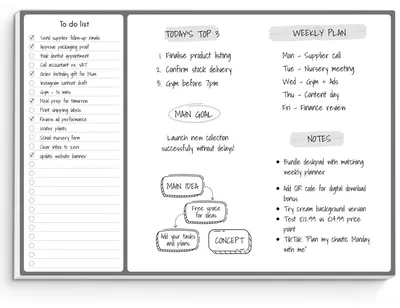 To do list
Send supplier follow-up emails
Approve packaging proof
Book dentist appointment
Call accountant re: VAT
Order birthday gift for Mum
Instagram content draft
Gym - 30 mins
Meal prep for tomorrow
Print shipping labels
Review ad performance
Water plants
School nursery form
Clear inbox to zero
Update website banner
TODAY'S TOP 3
1. Finalise product listing
2. Confirm stock delivery
3. Gym before 7pm
MAIN GOAL
Launch new collection
successfully without delays!
MAIN IDEA
Free space
for ideas
Add your tasks
and plans
CONCEPT
WEEKLY PLAN
Mon - Supplier call
Tue - Nursery meeting
Wed - Gym + Ads
Thu - Content day
Fri - Finance review
NOTES
Bundle deskpad with matching
weekly planner
Add QR code for digital download
bonus
Try cream background version
Test £12.99 vs £14.99 price
point
TikTok "Plan my chaotic Monday
with me"